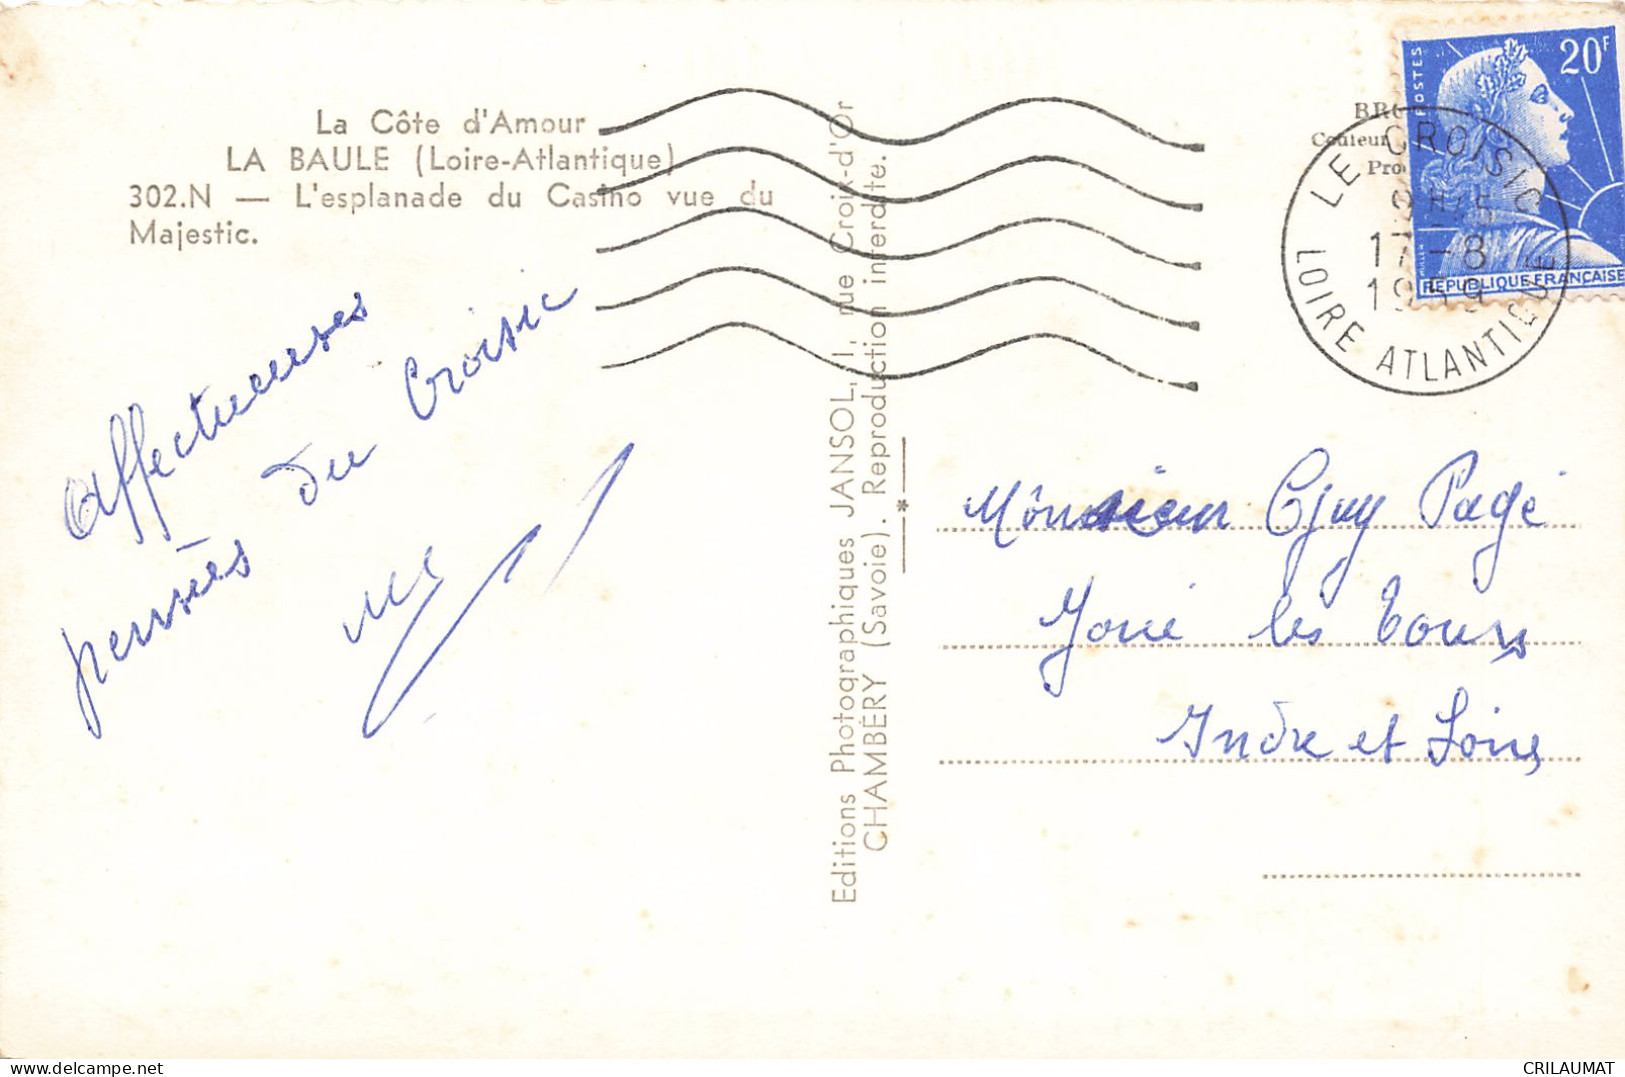 La Côte d'Amour
LA BAULE (Loire-Atlantique)
302.N — L'esplanade du Casino vue du
Majestic.
affectueuses
pensées du Croisic
Editions Photographiques JANSOL, 1, rue Croix-d'Or
CHAMBÉRY (Savoie). Reproduction interdite.
POSTES
20F
RÉPUBLIQUE FRANÇAISE
LE CROISIC
17-8
1959
LOIRE ATLANTIQUE
Monsieur Guy Pagé
Joué les Tours
Indre et Loire
CRILAUMAT